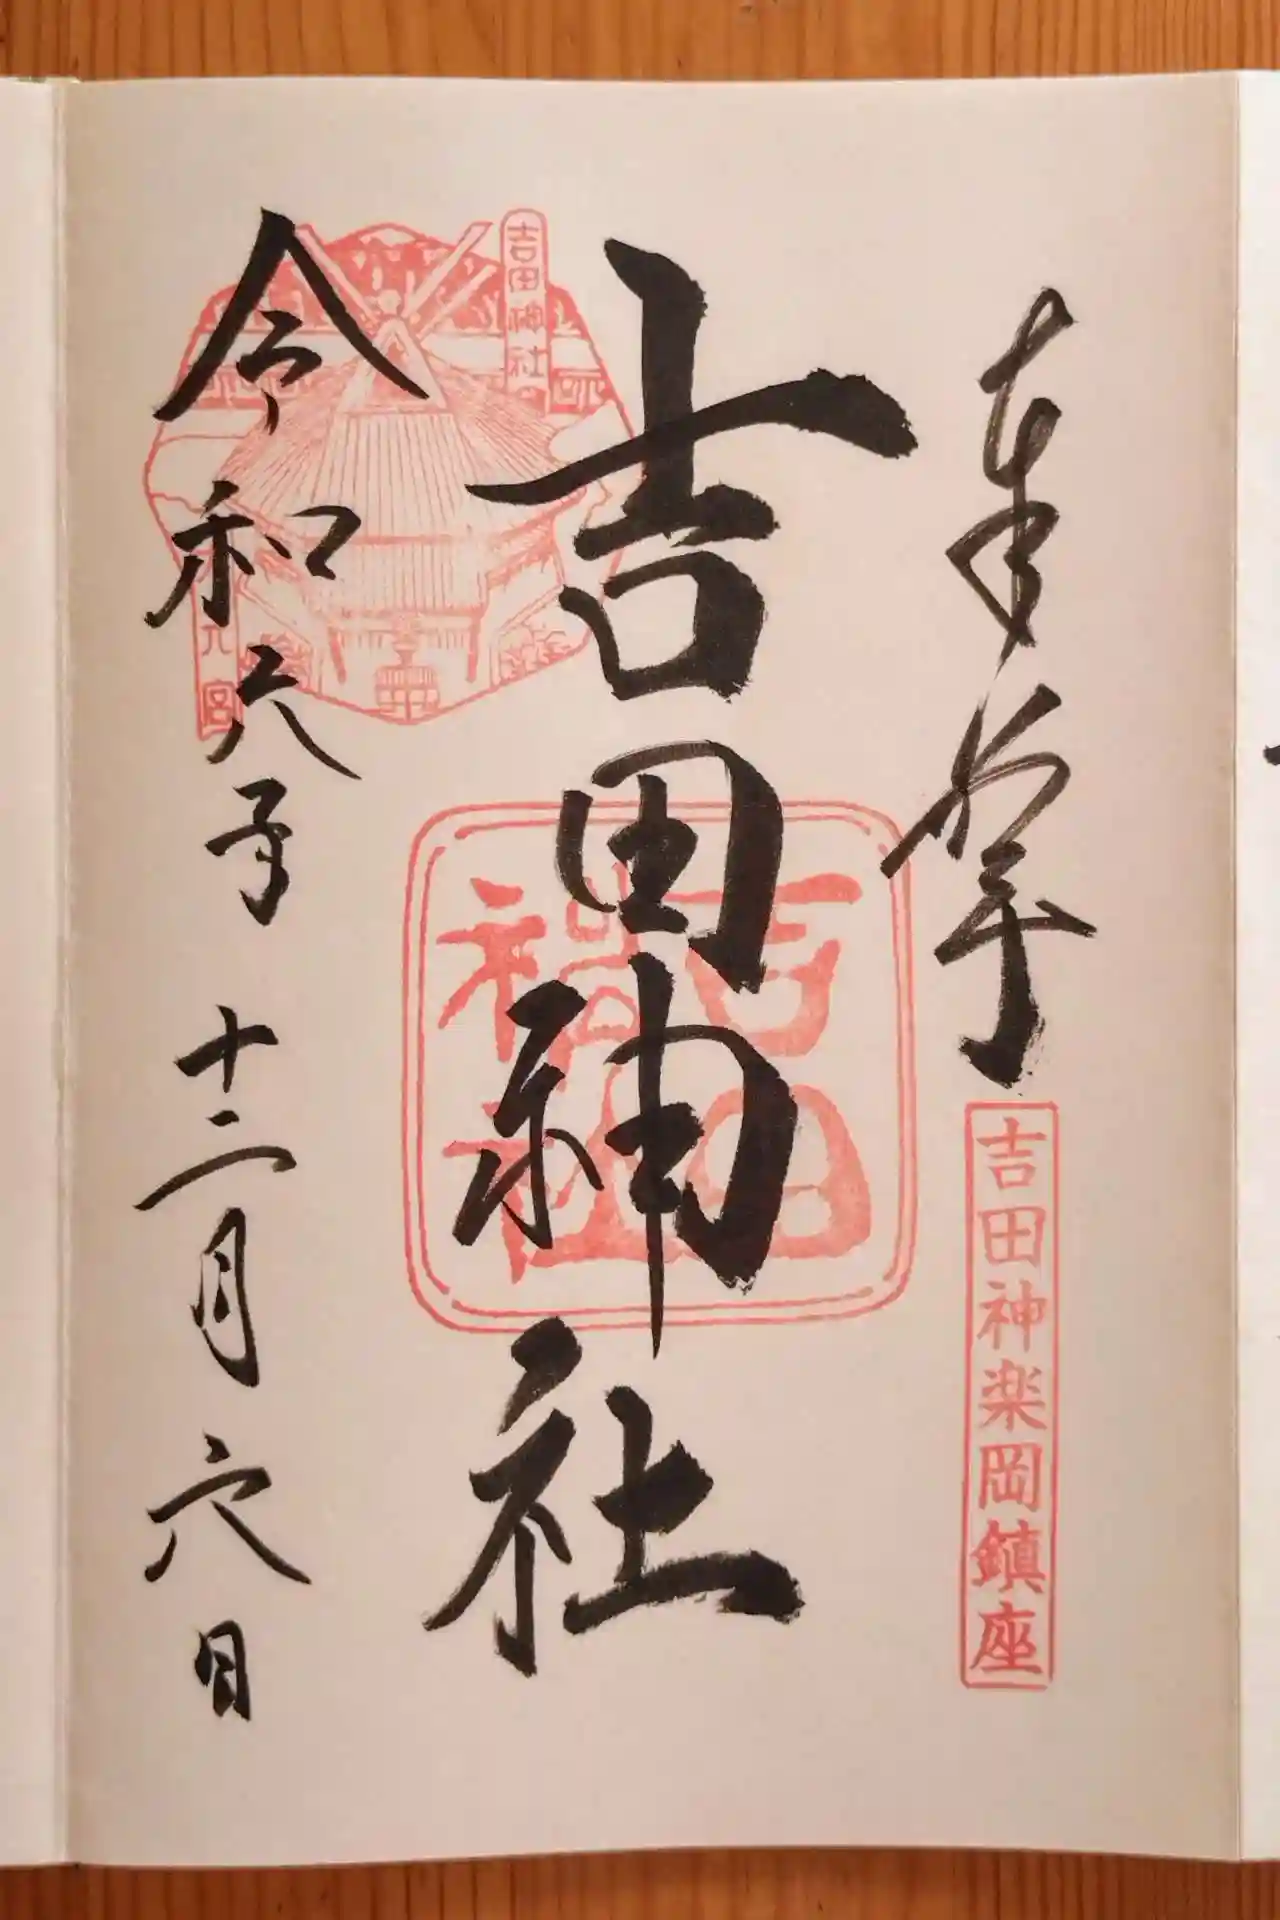 奉拝
吉田神楽岡鎮座
吉田神社
吉田神社
吉田神社
令和六年 十二月六日